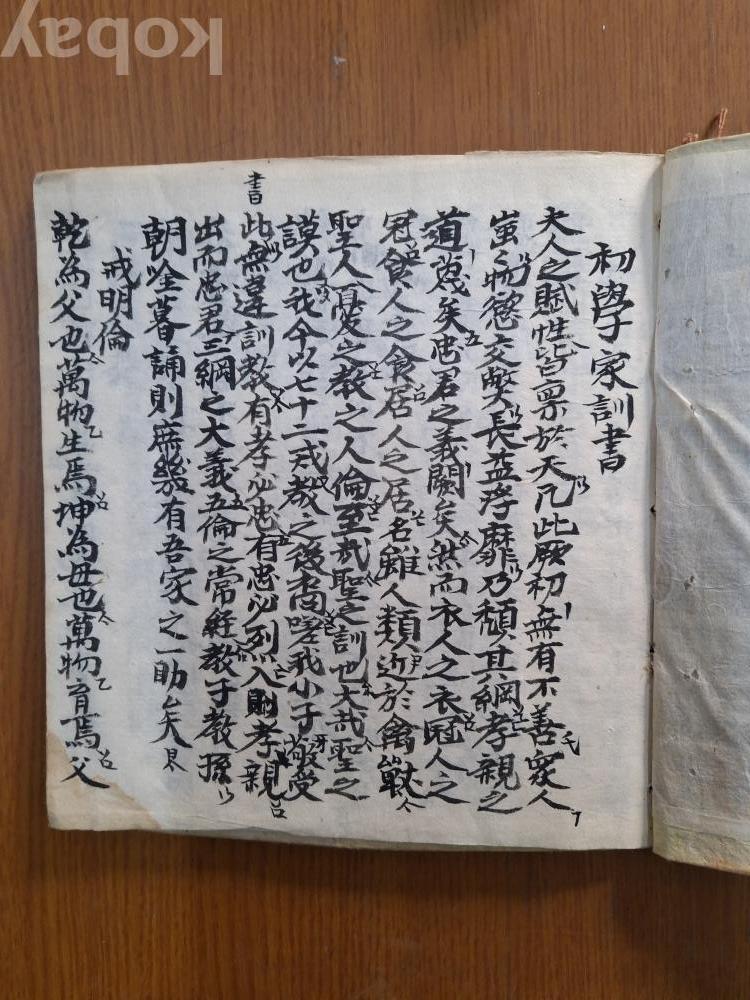 初學家訓書
夫人之賦性皆禀於天凡此厥初無有不善衆人
蚩〻物慾交獘長益浮靡乃頹其綱孝親之
道蔑矣忠君之義闕矣然而衣人之衣冠人之
冠食人之食居人之居名雖人類近於禽獸
聖人憂之教之人倫至哉聖之訓也大哉聖之
謨也我今以七十二戒教之後裔嗟我小子敬受
書
此無違訓教有孝必忠有忠必列入則孝親
出而忠君三綱之大義五倫之常經教子教孫
朝唫暮誦則庶幾有吾家之一助矣
戒明倫
乾為父也萬物生焉坤為母也萬物育焉父
kobay